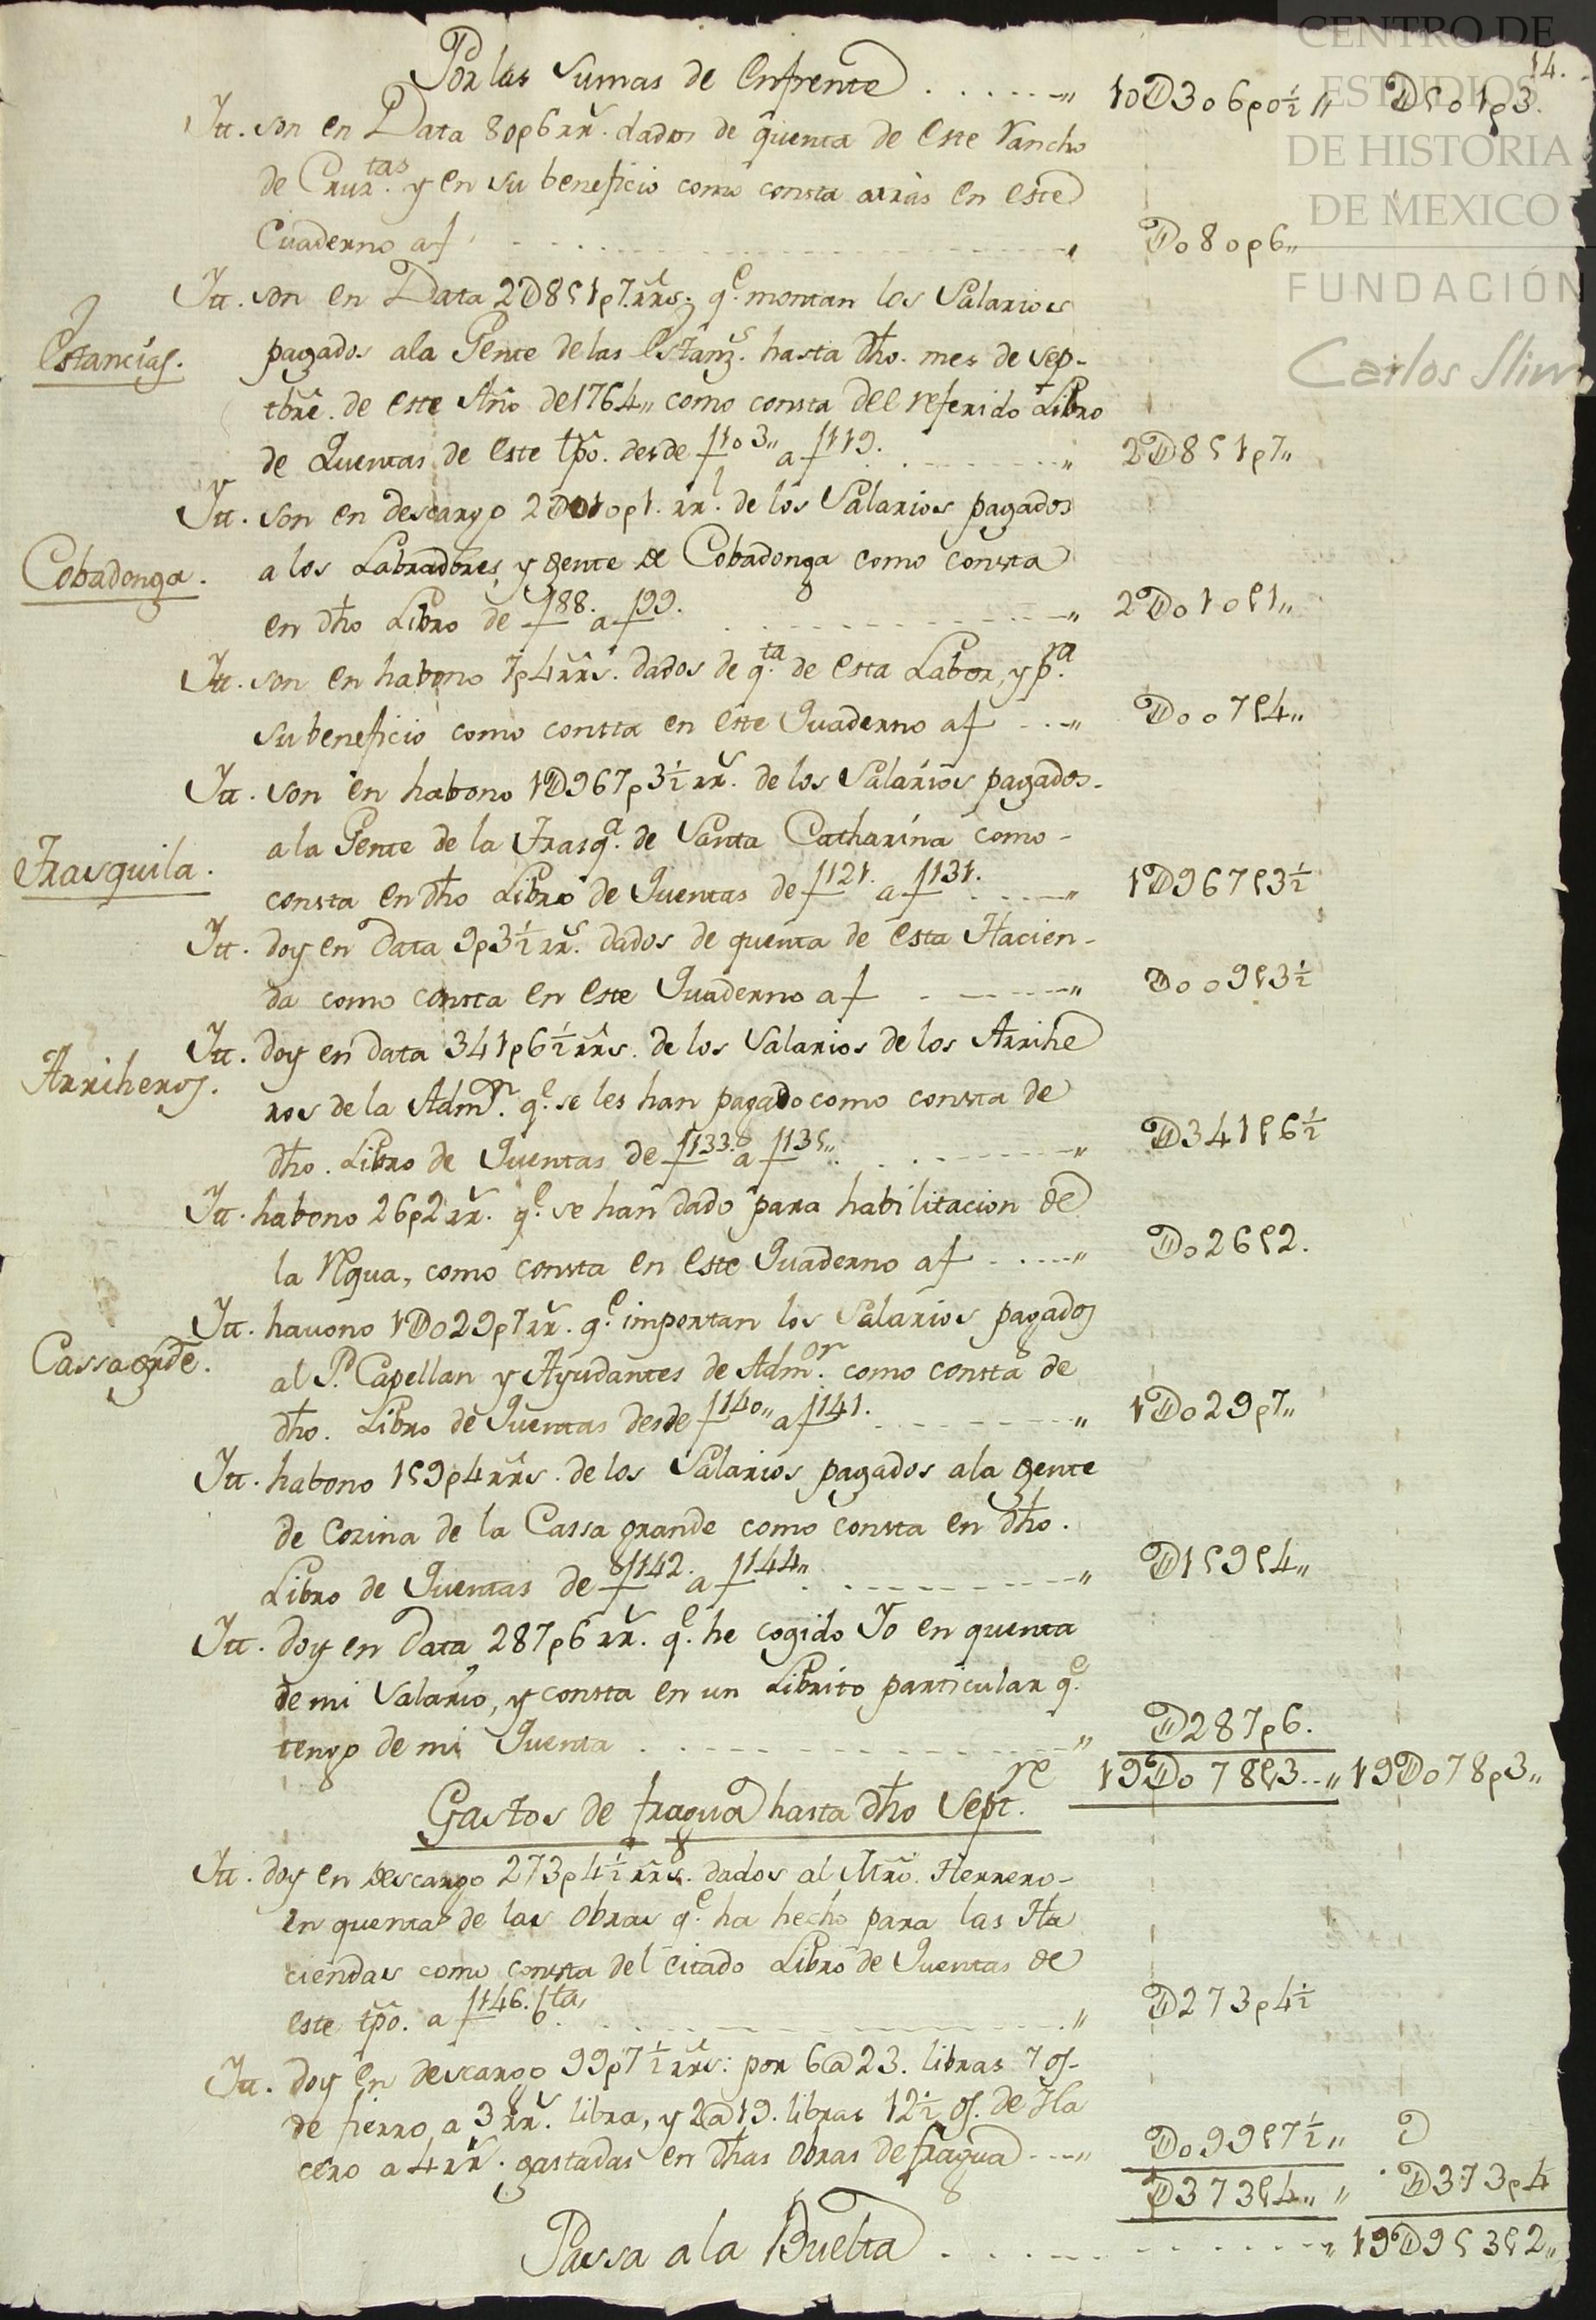 CENTRO DE
ESTUDIOS
DE HISTORIA
DE MEXICO
FUNDACIÓN
Carlos Slim
14.
Por las Sumas de enfrente . . . . . . „ 10D306p0½„ D501p3.
Itt. son en Data 80p6rrs. dados de quenta de este rancho
de Cruztas. y en su beneficio como consta atrás en este
Cuaderno af „ Do80p6„
Itt. son en Data 2D851p7.rrs. qe. montan los Salarios
Estancias. pagados ala Gente de las Estanzs. hasta dho. mes de sep-
tbre. de este Año de 1764„ como consta del referido Libro
de Quentas de este tpo. desde f103„ a f119. „ 2D851p7„
Itt. son en descargo 2D010p1. rrl. de los Salarios pagados
Cobadonga. a los Labradores, y gente de Cobadonga como consta
en dho Libro de f88. a f99. „ 2Do10p1„
Itt. son en habono 7p4rrs. dados de qta. de esta Labor, y pra.
su beneficio como consta en este Quaderno af . . . „ Doo7p4„
Itt. son en habono 1D967p3½rrs. de los Salarios pagados.
Frasquila. ala Gente de la Frasqa. de Santa Catharina como-
consta en dho Libro de Quentas de f121. a f131. „ 1D967p3½
Itt. doy en data 9p3½rrs. dados de quenta de esta Hacien-
da como consta en este Quaderno af „ Doo9p3½
Itt. doy en data 341p6½rrs. de los Salarios de los Arrihe
Arriheros. ros de la Admon. qe. se les han pagado como consta de
dho. Libro de Quentas de f133. a f135„ „ D341p6½
Itt. habono 26p2rrs. qe. se han dado para habilitacion de
la Rgua, como consta en este Quaderno af . . . „ Do26p2.
Itt. havono 1Do29p7rrs. qe. importan los Salarios pagados
Cassa grde. al Pe. Capellan y Ayudantes de Admor. como consta de
dho. Libro de Quentas desde f140„ a f141. „ 1Do29p7„
Itt. habono 159p4rrs. de los Salarios pagados ala gente
de cozina de la Cassa grande como consta en dho.
Libro de Quentas de f142. a f144„ „ D159p4„
Itt. doy en data 287p6rrs. qe. he cogido Yo en quenta
de mi Salario, y consta en un Librito particular qe.
tengo de mi Quenta „ D287p6.
19Do78p3..„ 19Do78p3„
Gastos de fragua hasta dho Septre.
Itt. doy en descargo 273p4½rrs. dados al Mro. Herrero-
en quenta de las obras qe. ha hecho para las Ha
ciendas como consta del citado Libro de Quentas de
este tpo. a f146. bta, „ D273p4½
Itt. doy en descargo 99p7½rrs: por 6@23. libras 7 os-
de fierro a 3rrs. libra, y 2@19. libras 12½ os. de Ha
cero a 4rrs. gastadas en dhas obras de fragua . . . „ Do99p7½„ D
D373p4„„ D373p4
Passa a la Buelta . . . . . „ 19D953p2„